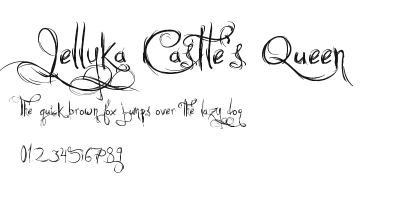 Jellyka Castle's Queen
The quick brown fox jumps over the lazy dog
0123456789